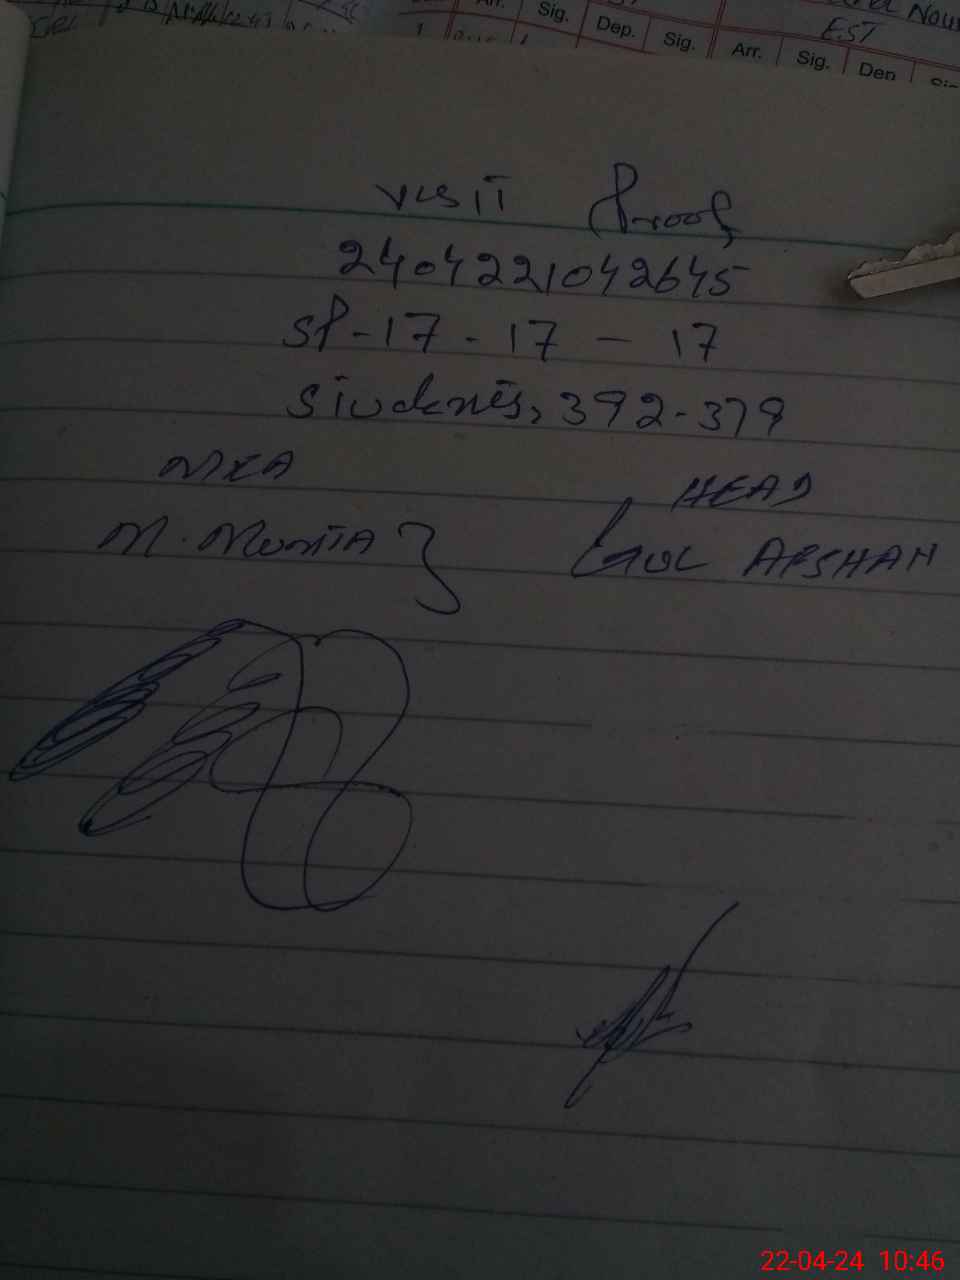 Arr. Sig. Dep. Sig. Arr. Sig. Den
EST
Visit Proof
2404221042645
SP-17-17-17
Students, 392-379
MEA HEAD
GUL AFSHAN
22-04-24 10:46